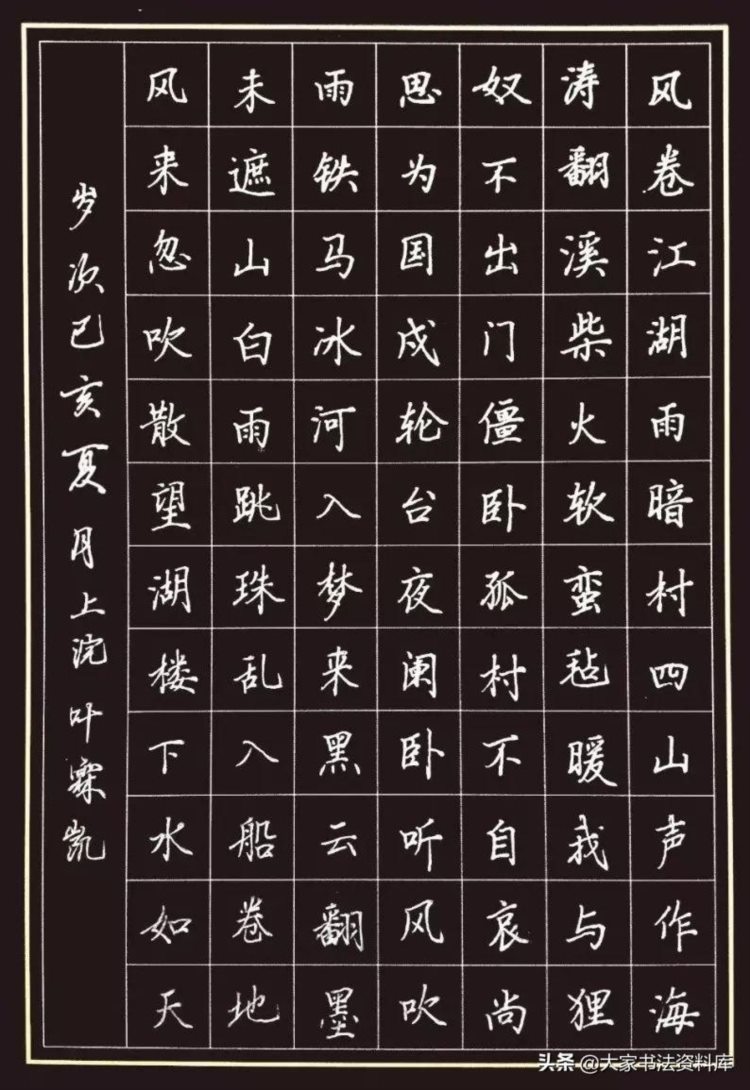 风卷江湖雨暗村四山声作海
涛翻溪柴火软蛮毡暖我与狸
奴不出门僵卧孤村不自哀尚
思为国戍轮台夜阑卧听风吹
雨铁马冰河入梦来黑云翻墨
未遮山白雨跳珠乱入船卷地
风来忽吹散望湖楼下水如天
岁次己亥夏月上浣叶霖凯
头条 @大家书法资料库